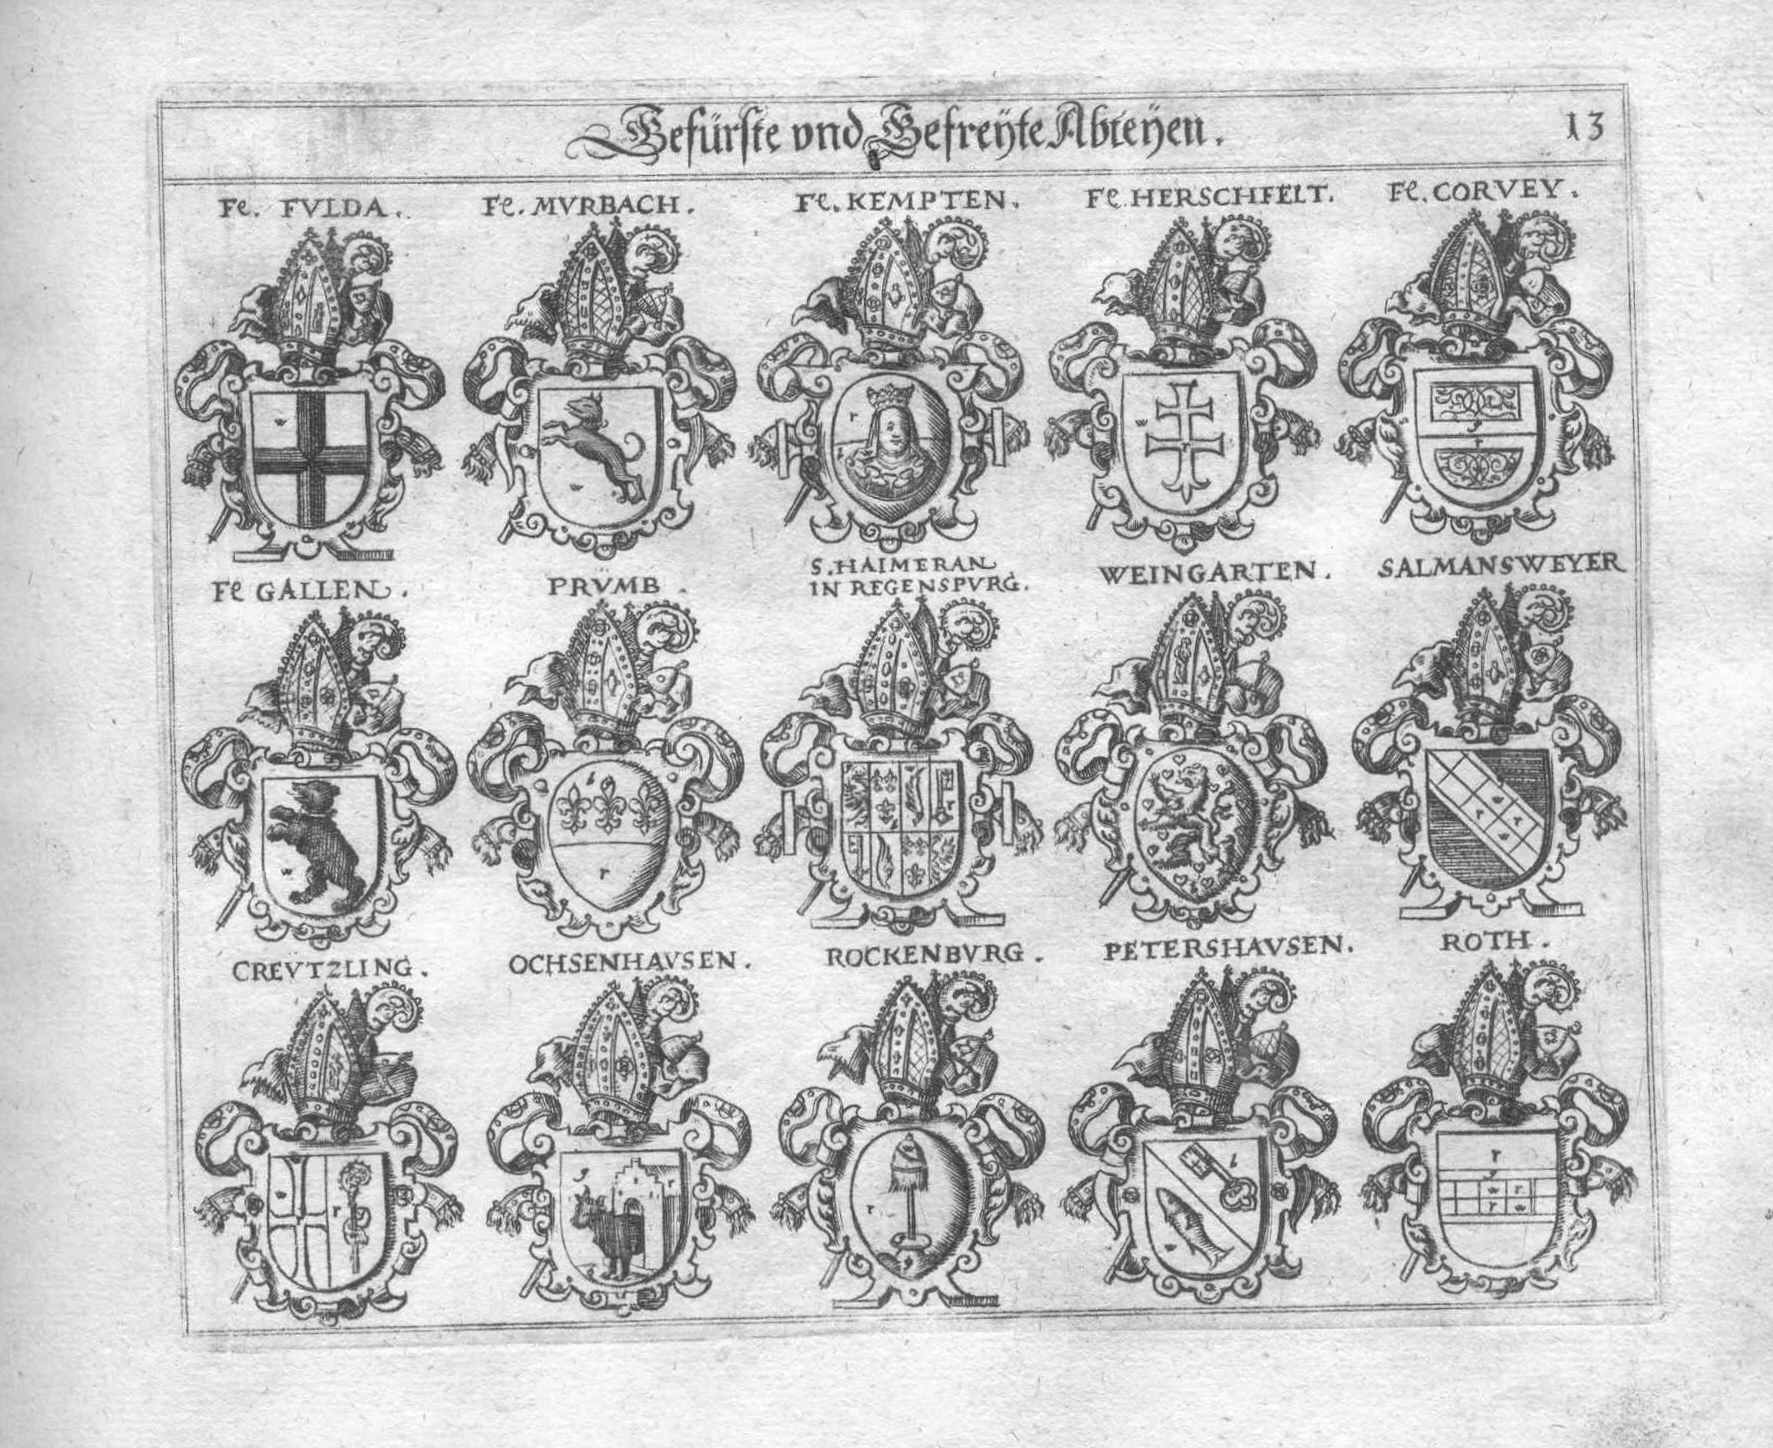 Gefürste vnd Gefreÿte Abteÿen.
13
Fe. FVLDA.
Fe. MVRBACH.
Fe. KEMPTEN.
Fe. HERSCHFELT.
Fe. CORVEY.
w
w
r
w
g
r
Fe GALLEN.
PRVMB.
S. HAIMERAN
IN REGENSPVRG.
WEINGARTEN.
SALMANSWEYER
w
b
r
r
w
r
r
w
CREVTZLING.
OCHSENHAVSEN.
ROCKENBVRG.
PETERSHAVSEN.
ROTH.
w
r
g
r
r
g
b
w
r
g
w
r
r
w